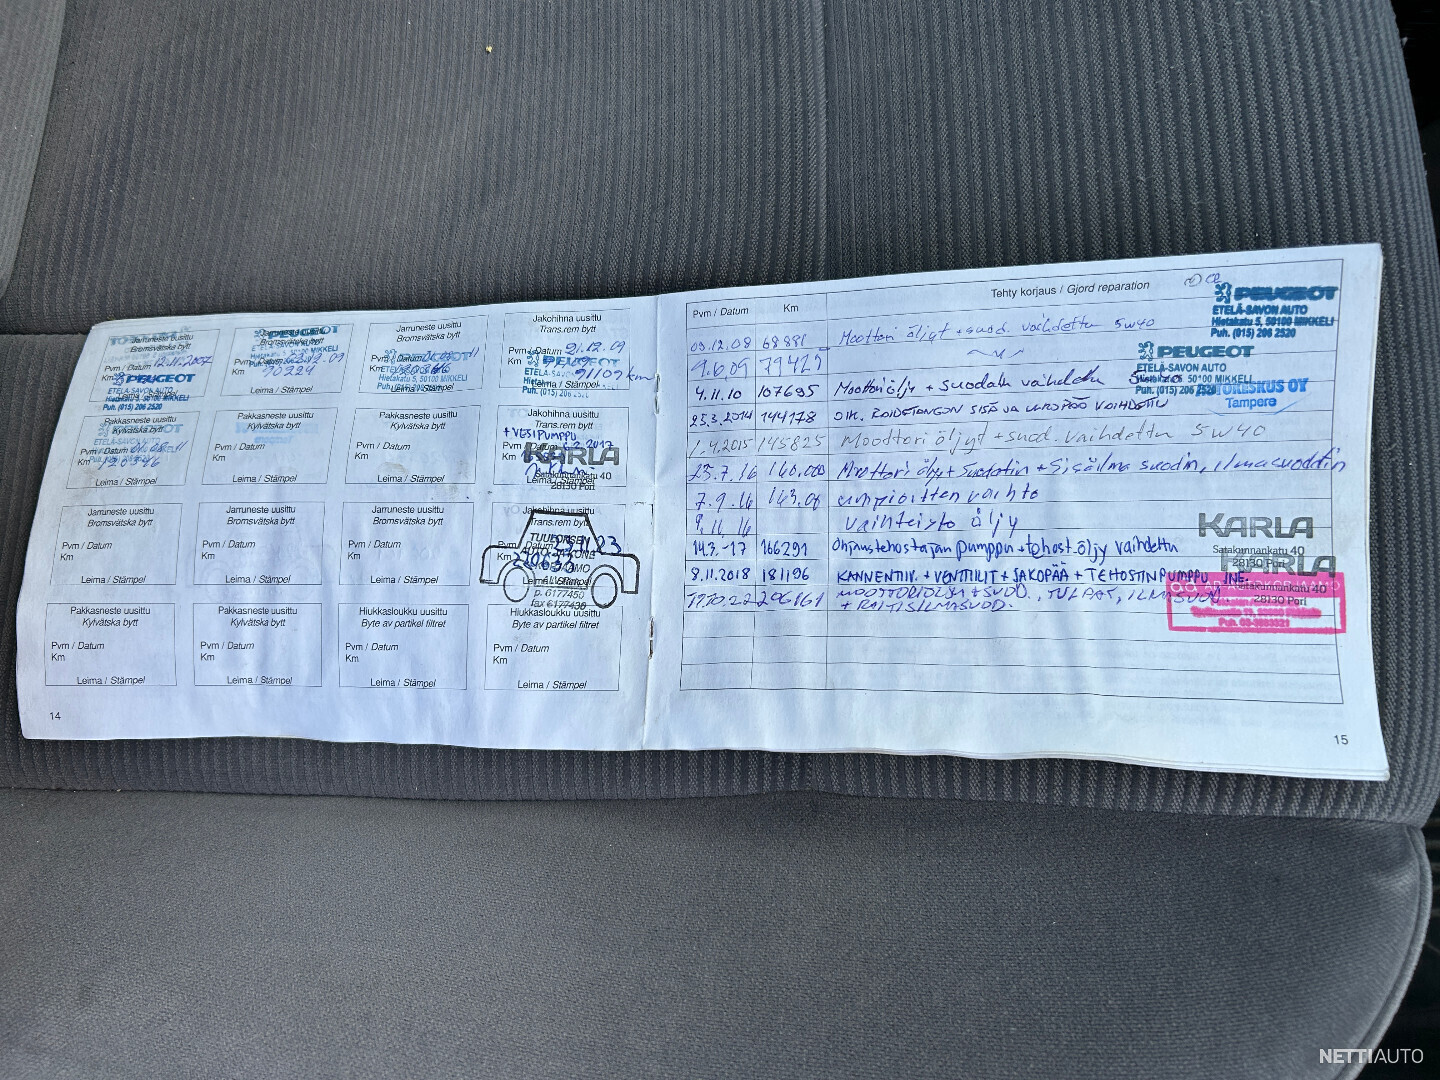 Jarruneste uusittu
Bromsvätska bytt
Pvm / Datum 12.11.2007
Km
PEUGEOT
ETELÄ-SAVON AUTO
Hietakatu 5, 50100 MIKKELI
Puh. (015) 206 2520
Jarruneste uusittu
Bromsvätska bytt
Pvm / Datum
Km 70224
Leima / Stämpel
Jarruneste uusittu
Bromsvätska bytt
Pvm / Datum
Km
Hietakatu 5, 50100 MIKKELI
Leima / Stämpel
Jakohihna uusittu
Trans.rem bytt
Pvm / Datum 21.12.09
Km 91109 km
PEUGEOT
Leima / Stämpel
Puh. (015) 206 2520
Pakkasneste uusittu
Kylvätska bytt
Pvm / Datum
Km 120346
ETELÄ-SAVON AUTO
Leima / Stämpel
Pakkasneste uusittu
Kylvätska bytt
Pvm / Datum
Km
Leima / Stämpel
Pakkasneste uusittu
Kylvätska bytt
Pvm / Datum
Km
Leima / Stämpel
Jakohihna uusittu
Trans.rem bytt
+VESIPUMPPU
Pvm / Datum
Km
KARLA
Satakunnankatu 40
28130 Pori
Leima / Stämpel
Jarruneste uusittu
Bromsvätska bytt
Pvm / Datum
Km
Leima / Stämpel
Jarruneste uusittu
Bromsvätska bytt
Pvm / Datum
Km
Leima / Stämpel
Jarruneste uusittu
Bromsvätska bytt
Pvm / Datum
Km
Leima / Stämpel
Jakohihna uusittu
Trans.rem bytt
Pvm / Datum
Km
TUULOKSEN
p. 6177450
fax 6177430
Pakkasneste uusittu
Kylvätska bytt
Pvm / Datum
Km
Leima / Stämpel
Pakkasneste uusittu
Kylvätska bytt
Pvm / Datum
Km
Leima / Stämpel
Hiukkasloukku uusittu
Byte av partikel filtret
Pvm / Datum
Km
Leima / Stämpel
Hiukkasloukku uusittu
Byte av partikel filtret
Pvm / Datum
Km
Leima / Stämpel
14
Pvm / Datum Km Tehty korjaus / Gjord reparation
PEUGEOT
ETELÄ-SAVON AUTO
Hietakatu 5, 50100 MIKKELI
Puh. (015) 206 2520
09.12.08 68881 Moottori öljyt + suod. vaihdettu 5w40
9.6.09 79429
PEUGEOT
ETELÄ-SAVON AUTO
Hietakatu 5, 50100 MIKKELI
Puh. (015) 206 2520
4.11.10 107695 Moottoriöljy + suodatin vaihdettu
Tampere
25.3.2014 144178 OIK. RAIDETANGON SISÄ JA ULKOPÄÄ VAIHDETTU
1.4.2015 145825 Moottori öljyt + suod. vaihdettu 5w40
25.7.16 160.000 Moottori öljy + Suodatin + Sisäilma suodin, ilmasuodatin
7.9.16 umpioitten vaihto
9.11.16 Vaihteisto öljy
KARLA
Satakunnankatu 40
28130 Pori
14.3.-17 166291 Ohjaustehostajan pumppu + tehost.öljy vaihdettu
KARLA
Satakunnankatu 40
28130 Pori
8.11.2018 181196 KANNENTIIV. + VENTTIILIT + JAKOPÄÄ + TEHOSTINPUMPPU, YNE.
206161 MOOTTORIÖLJY + SUOD., TULPAT, ILMASUOD.
+ RAITISILMASUOD.
15
NETTIAUTO